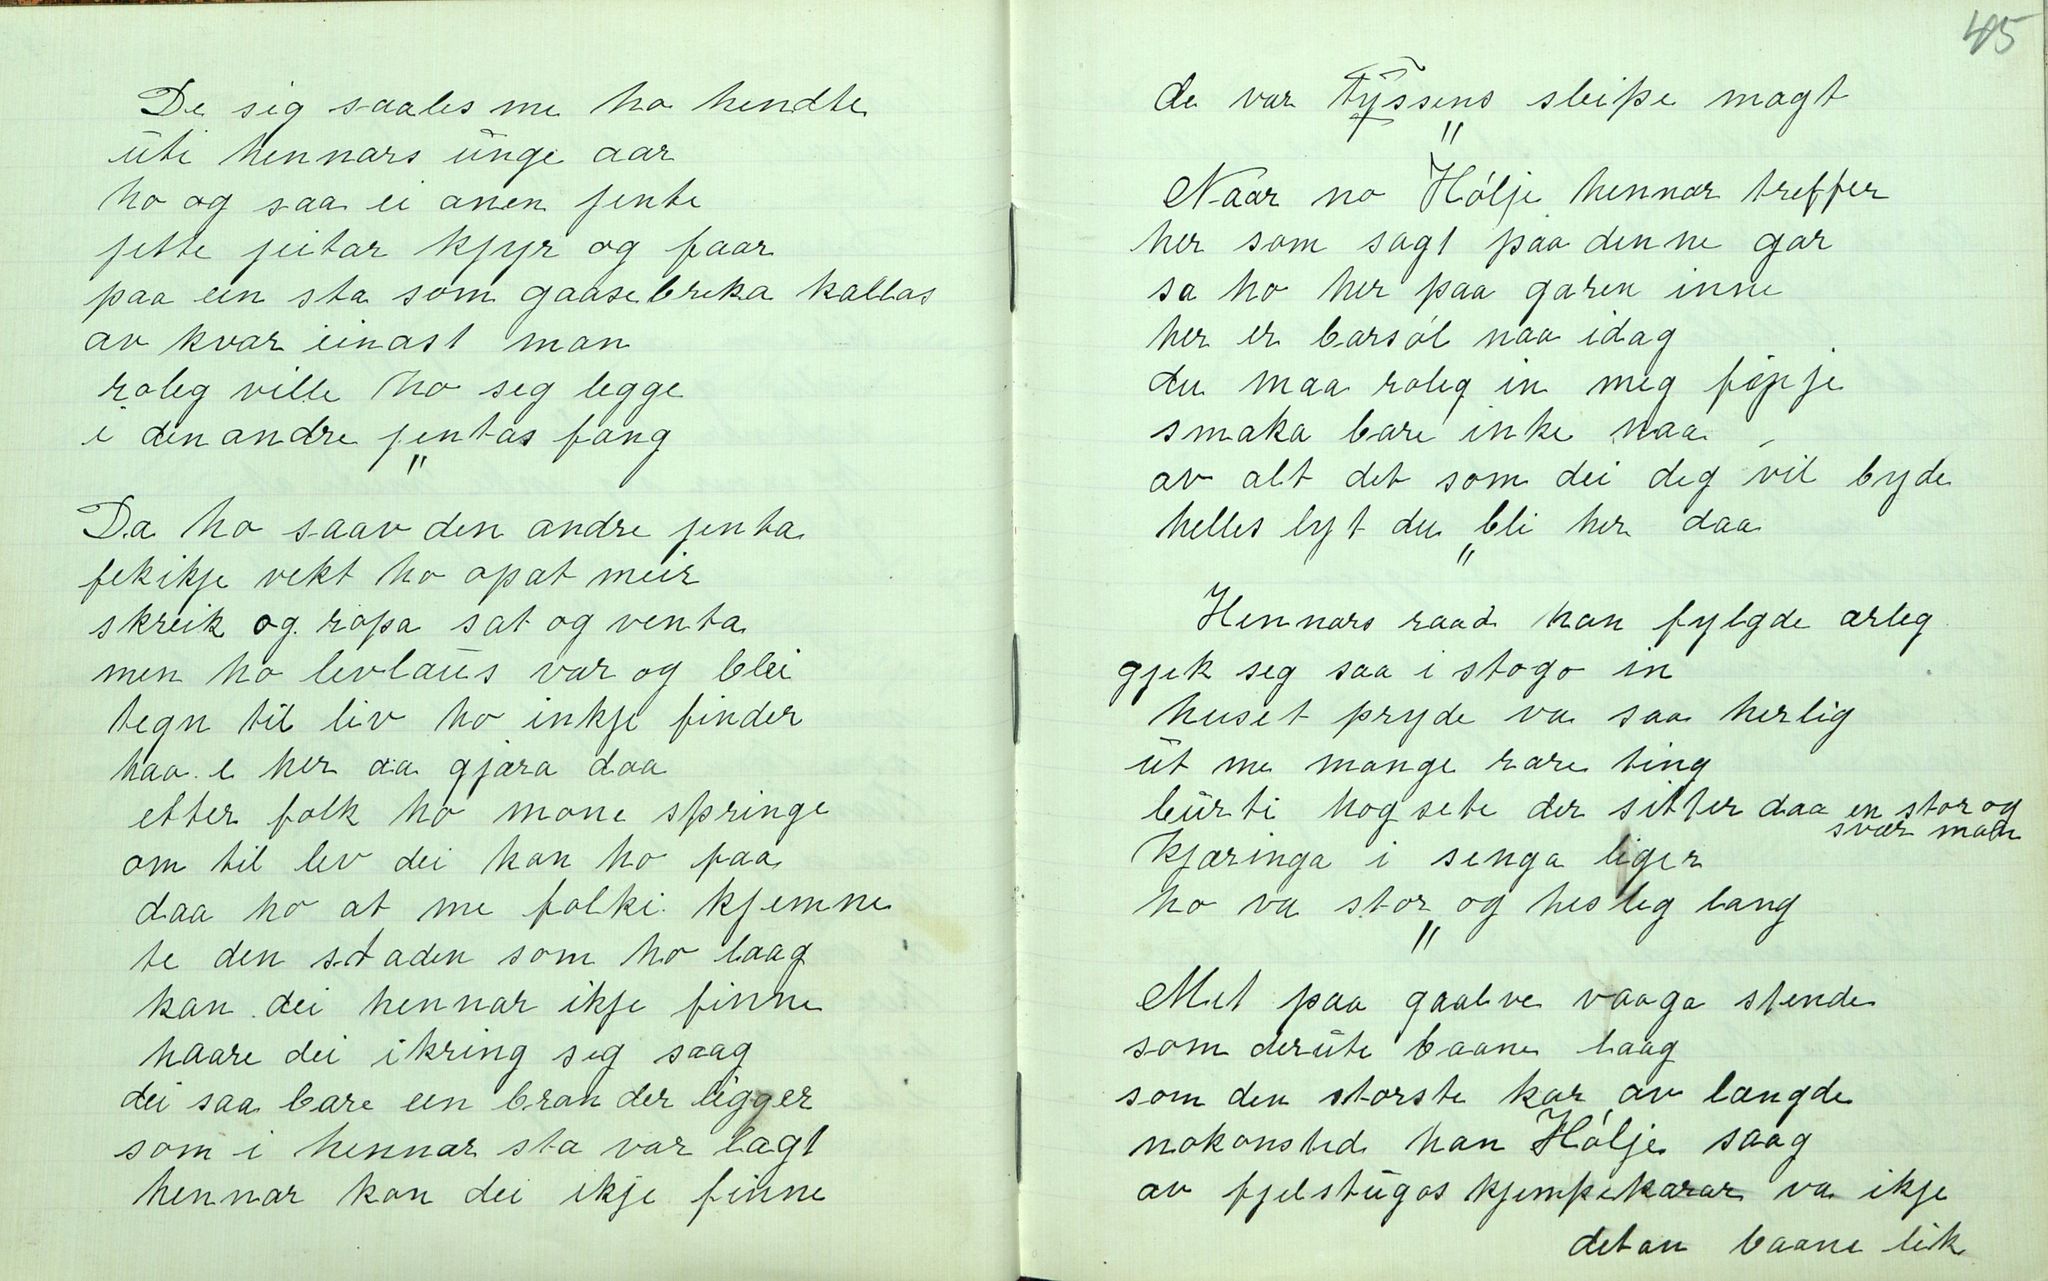 De sig saales me ho hendte
üti hennars ünge aar
ho og saa ei anen jente
jette jeitar kjyr og faar
paa ein sta som gaasebreka kallas
av kvar einast man
roleg ville ho seg legge
i den andre jentas fang
"
Da ho saav den andre jenta
fekikje vekt ho opat meir
skreik og ropa sat og venta
men ho levlaüs var og blei
tegn til liv ho inkje finder
haa e her aa gjæra daa
etter folk ho mone springe
om til lev dei kan ho faa
daa ho at me folki kjemne
te den staden som ho laag
kan dei hennar ikje finne
haare dei ikring seg saag
dei saa bare een bran der ligger
som i hennar sta var lagt
hennar kan dei ikje finne
45
de var Tyssens sleipe magt
"
Naar no Hólje hennar treffer
her som sagt paa denne gar
sa ho her paa garen inne
her er barsól naa idag
du maa roleg in meg føpje
smaka bare inke naa
av alt det som dei deg vil byde
helles lyt du bli her daa
"
Hennars raad han fylgde ærleg
gjek seg saa i stogo in
huset pryde va saa herlig
üt me mange rare ting
bürti hogsete der sitter daa en stor og
svær man
kjæringa i senga liger
ho va stor og hesleg lang
"
Met paa gaalve vaaga stende
som derüte baane laag
som den storste kar av længde
nokonsted han Hólje saag
av fjelstügas kjempekarar va ikje
detan baane lik